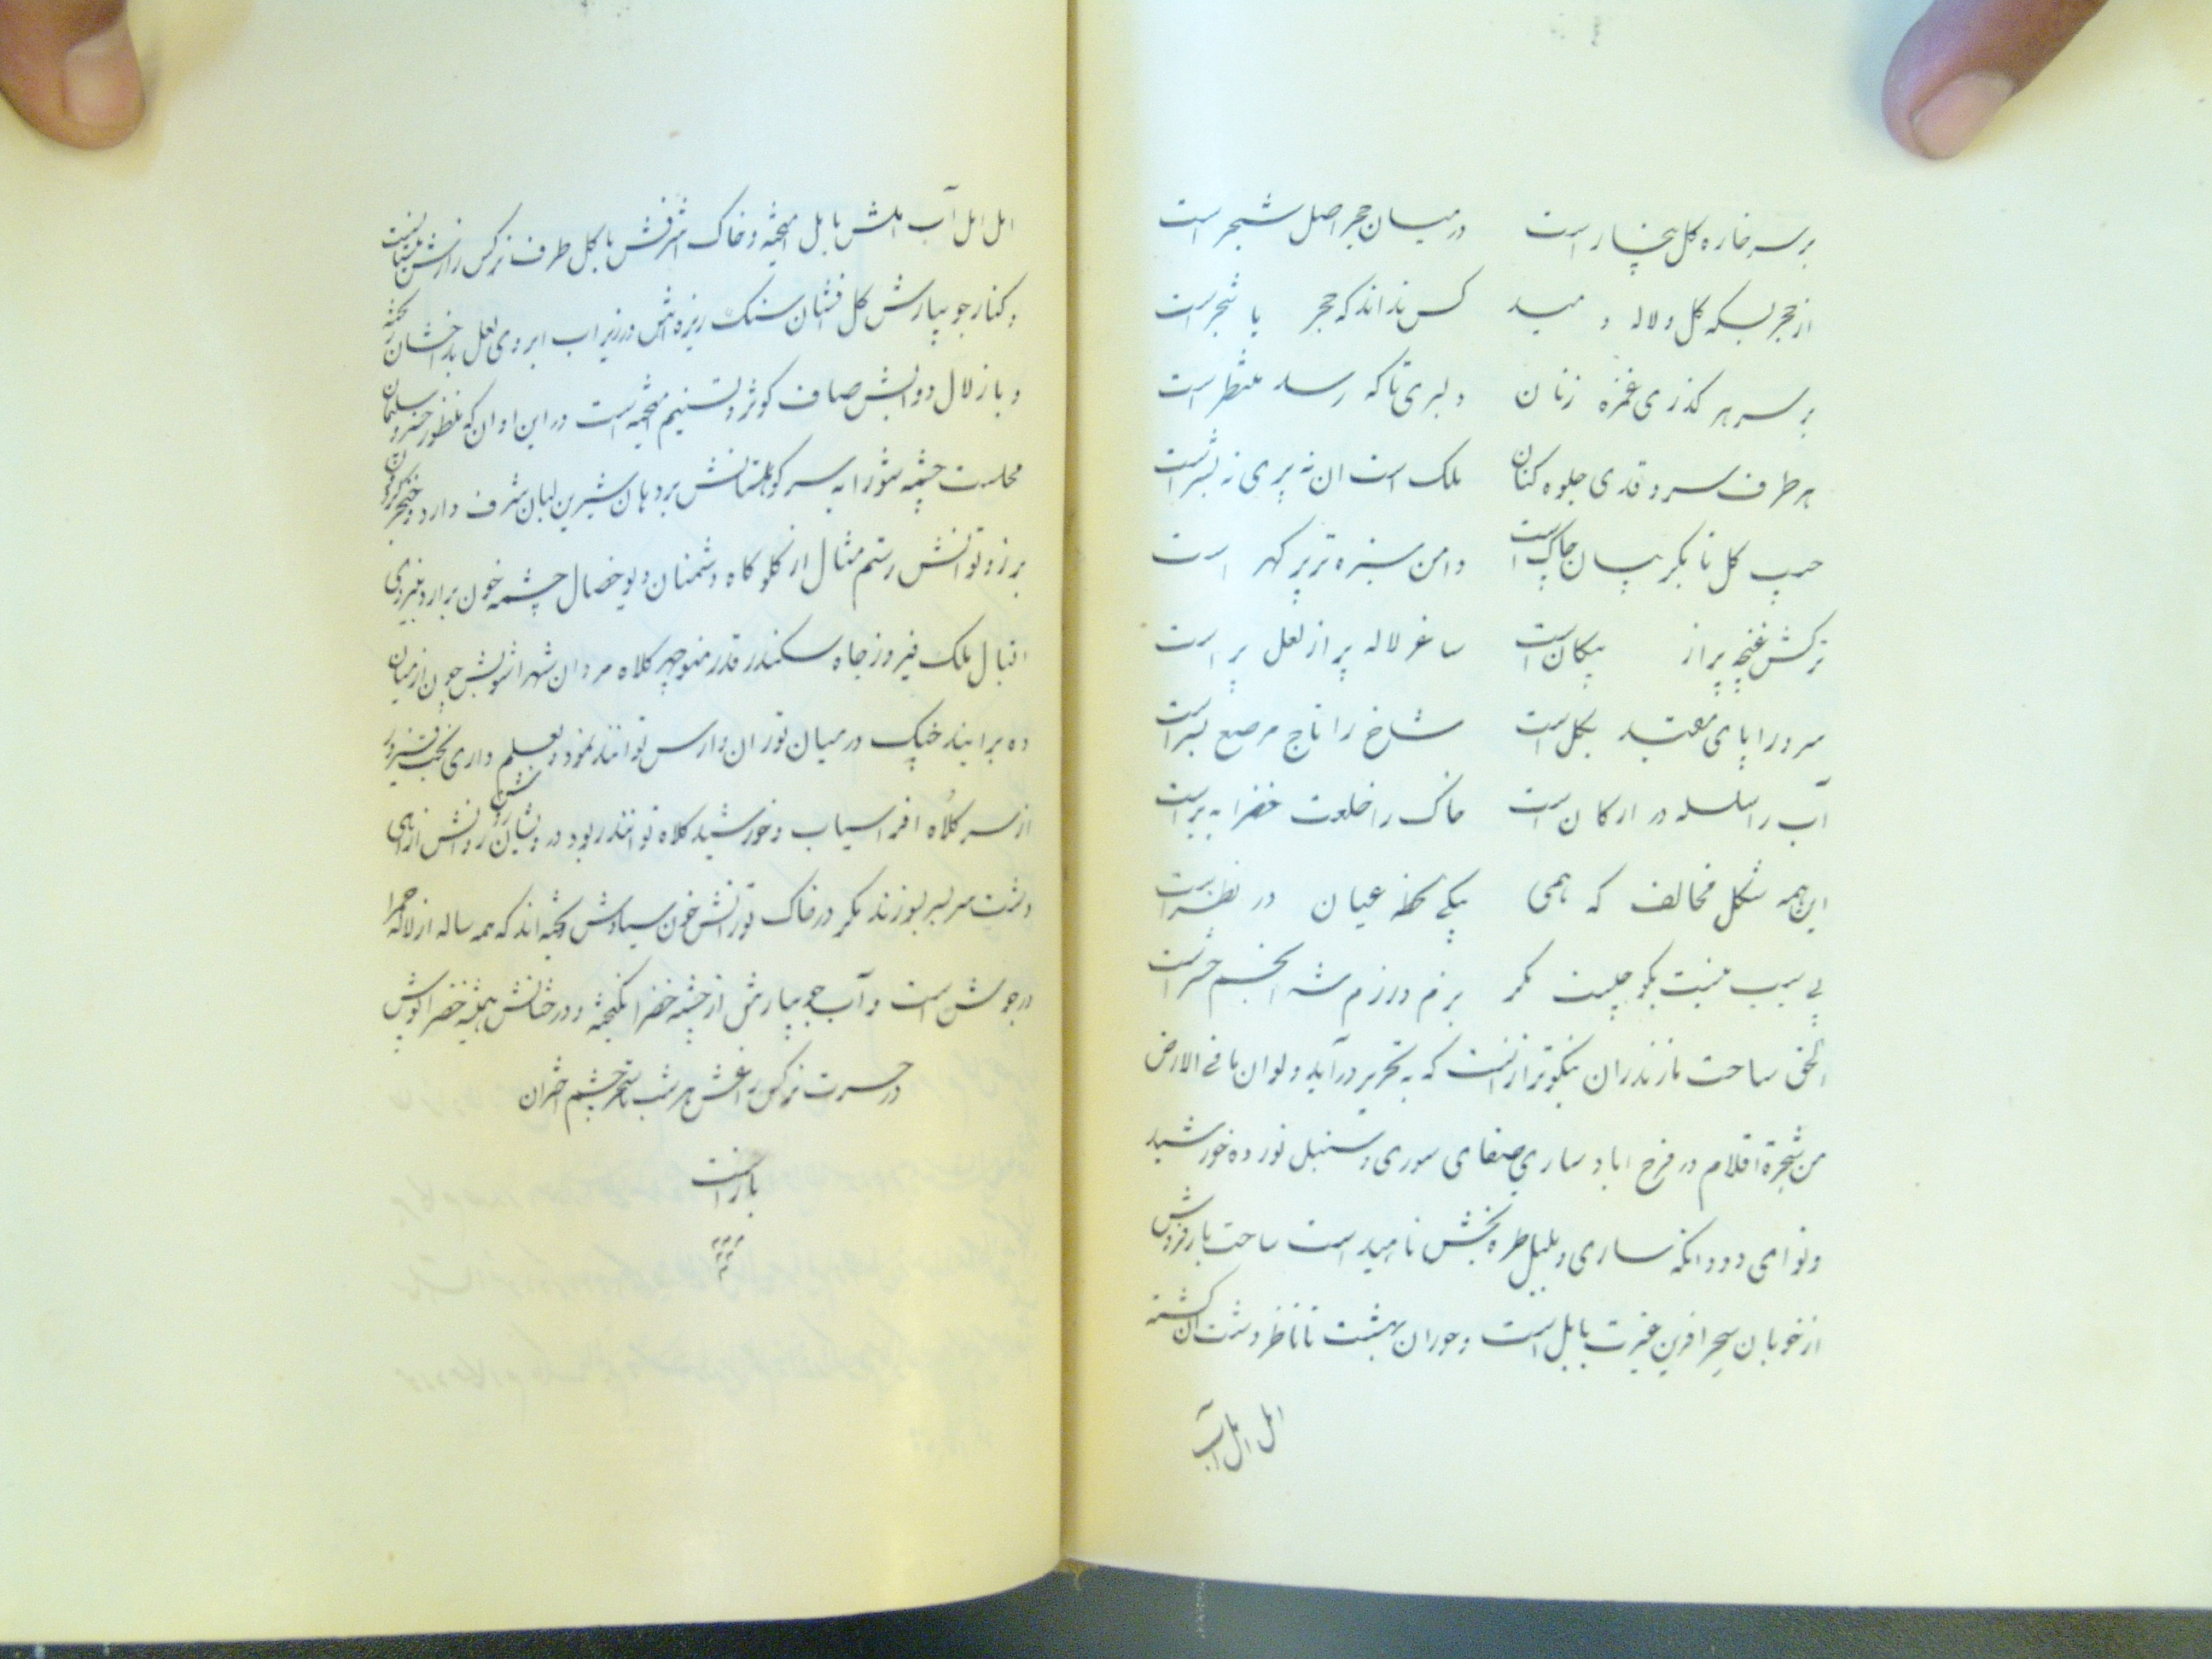 بر سر خاره کل بیخار است در میان حجر اصل شجر است
از حجر بسکه کل و لاله دمید کس نداند که حجر یا شجر است
بر سر هر کذری غمزه زنان دلبری تا که رسد منتظر است
هر طرف سرو قدی جلوه کنان ملک است ان نه پری نه بشر است
جیب کل تا بکریبان چاک است دامن سبزه تر پر کهر است
ترکش غنچه پر از پیکان است ساغر لاله پر از لعل تر است
سرو را پای مقید بکل است شاخ را تاج مرصع بسر است
آب را سلسله در ارکان است خاک را خلعت خضرا ببر است
این همه شکل مخالف که همی یکی لحظه عیان در نظر است
بی سبب نیست بکو چیست مکر بزم و رزم شه انجم حشر است
الحق ساحت مازندران نیکوتر از انست که به تحریر در آید ولو ان ما فی الارض
من شجرة اقلام در فرح اباد ساری صفای سوری و سنبل نور ده خورشید
و نوای دو دانکه ساری و بلبل طره بخش ناهید است ساحت بارفروش
از خوبان سحر افرین غیرت بابل است و حوران بهشت تا ناظر دشت ان کشته
اهل اهل آب
اهل اهل آب املش با بل امیخته و خاک اشرفش با کل طرف نرکس زارش
و کنار جویبارش کل افشان سنک ریزه اش در زیر اب ابروی لعل بدخشان ریخته
و با زلال دو ابش صاف کوثر و تسنیم امیخته است در این اوان که منظور خسرو سلیمان
چشمه شورابه سر کوهستانش بر دهان شیرین لبان شرف دارد و خنجر
بر زو توانش رستم مثال از کلو کاه دشمنان دیو خصال چشمه خون برارد
اقبال ملک فیروز جاه سکندر قدر منوچهر کلاه مردان شهر اشوبش چون از میان
ده برایند خنک در میان توران و ارس توانند نمود و بعلم داری بخت فیروز
از سر کلاه افراسیاب و خورشید کلاه توانند ربود
دشت سر بسر بوزند مکر در خاک تورانش خون سیاوش ریخته اند که همه ساله از لاله حمرا
در جوش است و آب جویبارش از چشمه خضر انکیخته و درختانش همیشه خضرا پوش
در حسرت نرکس باغش هر شب تا سحر چشم اختران
بازانست